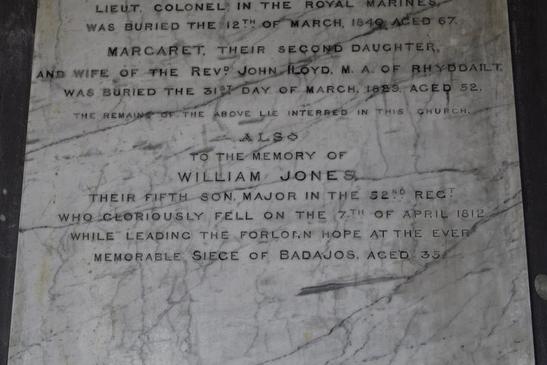 LIEUT. COLONEL, IN THE ROYAL MARINES,
WAS BURIED THE 12TH OF MARCH, 1840, AGED 67.
MARGARET, THEIR SECOND DAUGHTER,
AND WIFE OF THE REVD. JOHN LLOYD, M. A. OF RHYDDAILT,
WAS BURIED THE 31ST DAY OF MARCH, AGED 52.
THE REMAINS OF THE ABOVE LIE INTERRED IN THIS CHURCH.
ALSO
TO THE MEMORY OF
WILLIAM JONES,
THEIR FIFTH SON, MAJOR IN THE 52ND REGT
WHO GLORIOUSLY FELL ON THE 7TH OF APRIL 1812
WHILE LEADING THE FORLORN HOPE AT THE EVER
MEMORABLE SIEGE OF BADAJOS, AGED 35.